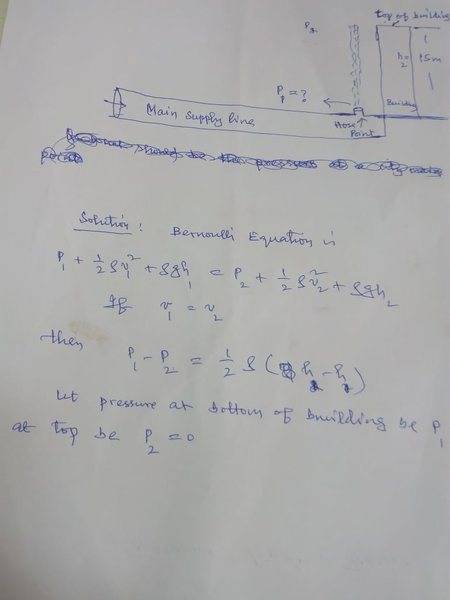 top of building
P₂
h₂ = 15m
P₁ = ?
Building
Main supply line
Hose Point
Solution : Bernoulli Equation is
P₁ + 1/2 ρv₁² + ρgh₁ = P₂ + 1/2 ρv₂² + ρgh₂
If v₁ = v₂
then
P₁ - P₂ = 1/2 ρ ( h₂ - h₁ )
Let pressure at bottom of building be P₁
at top be P₂ = 0